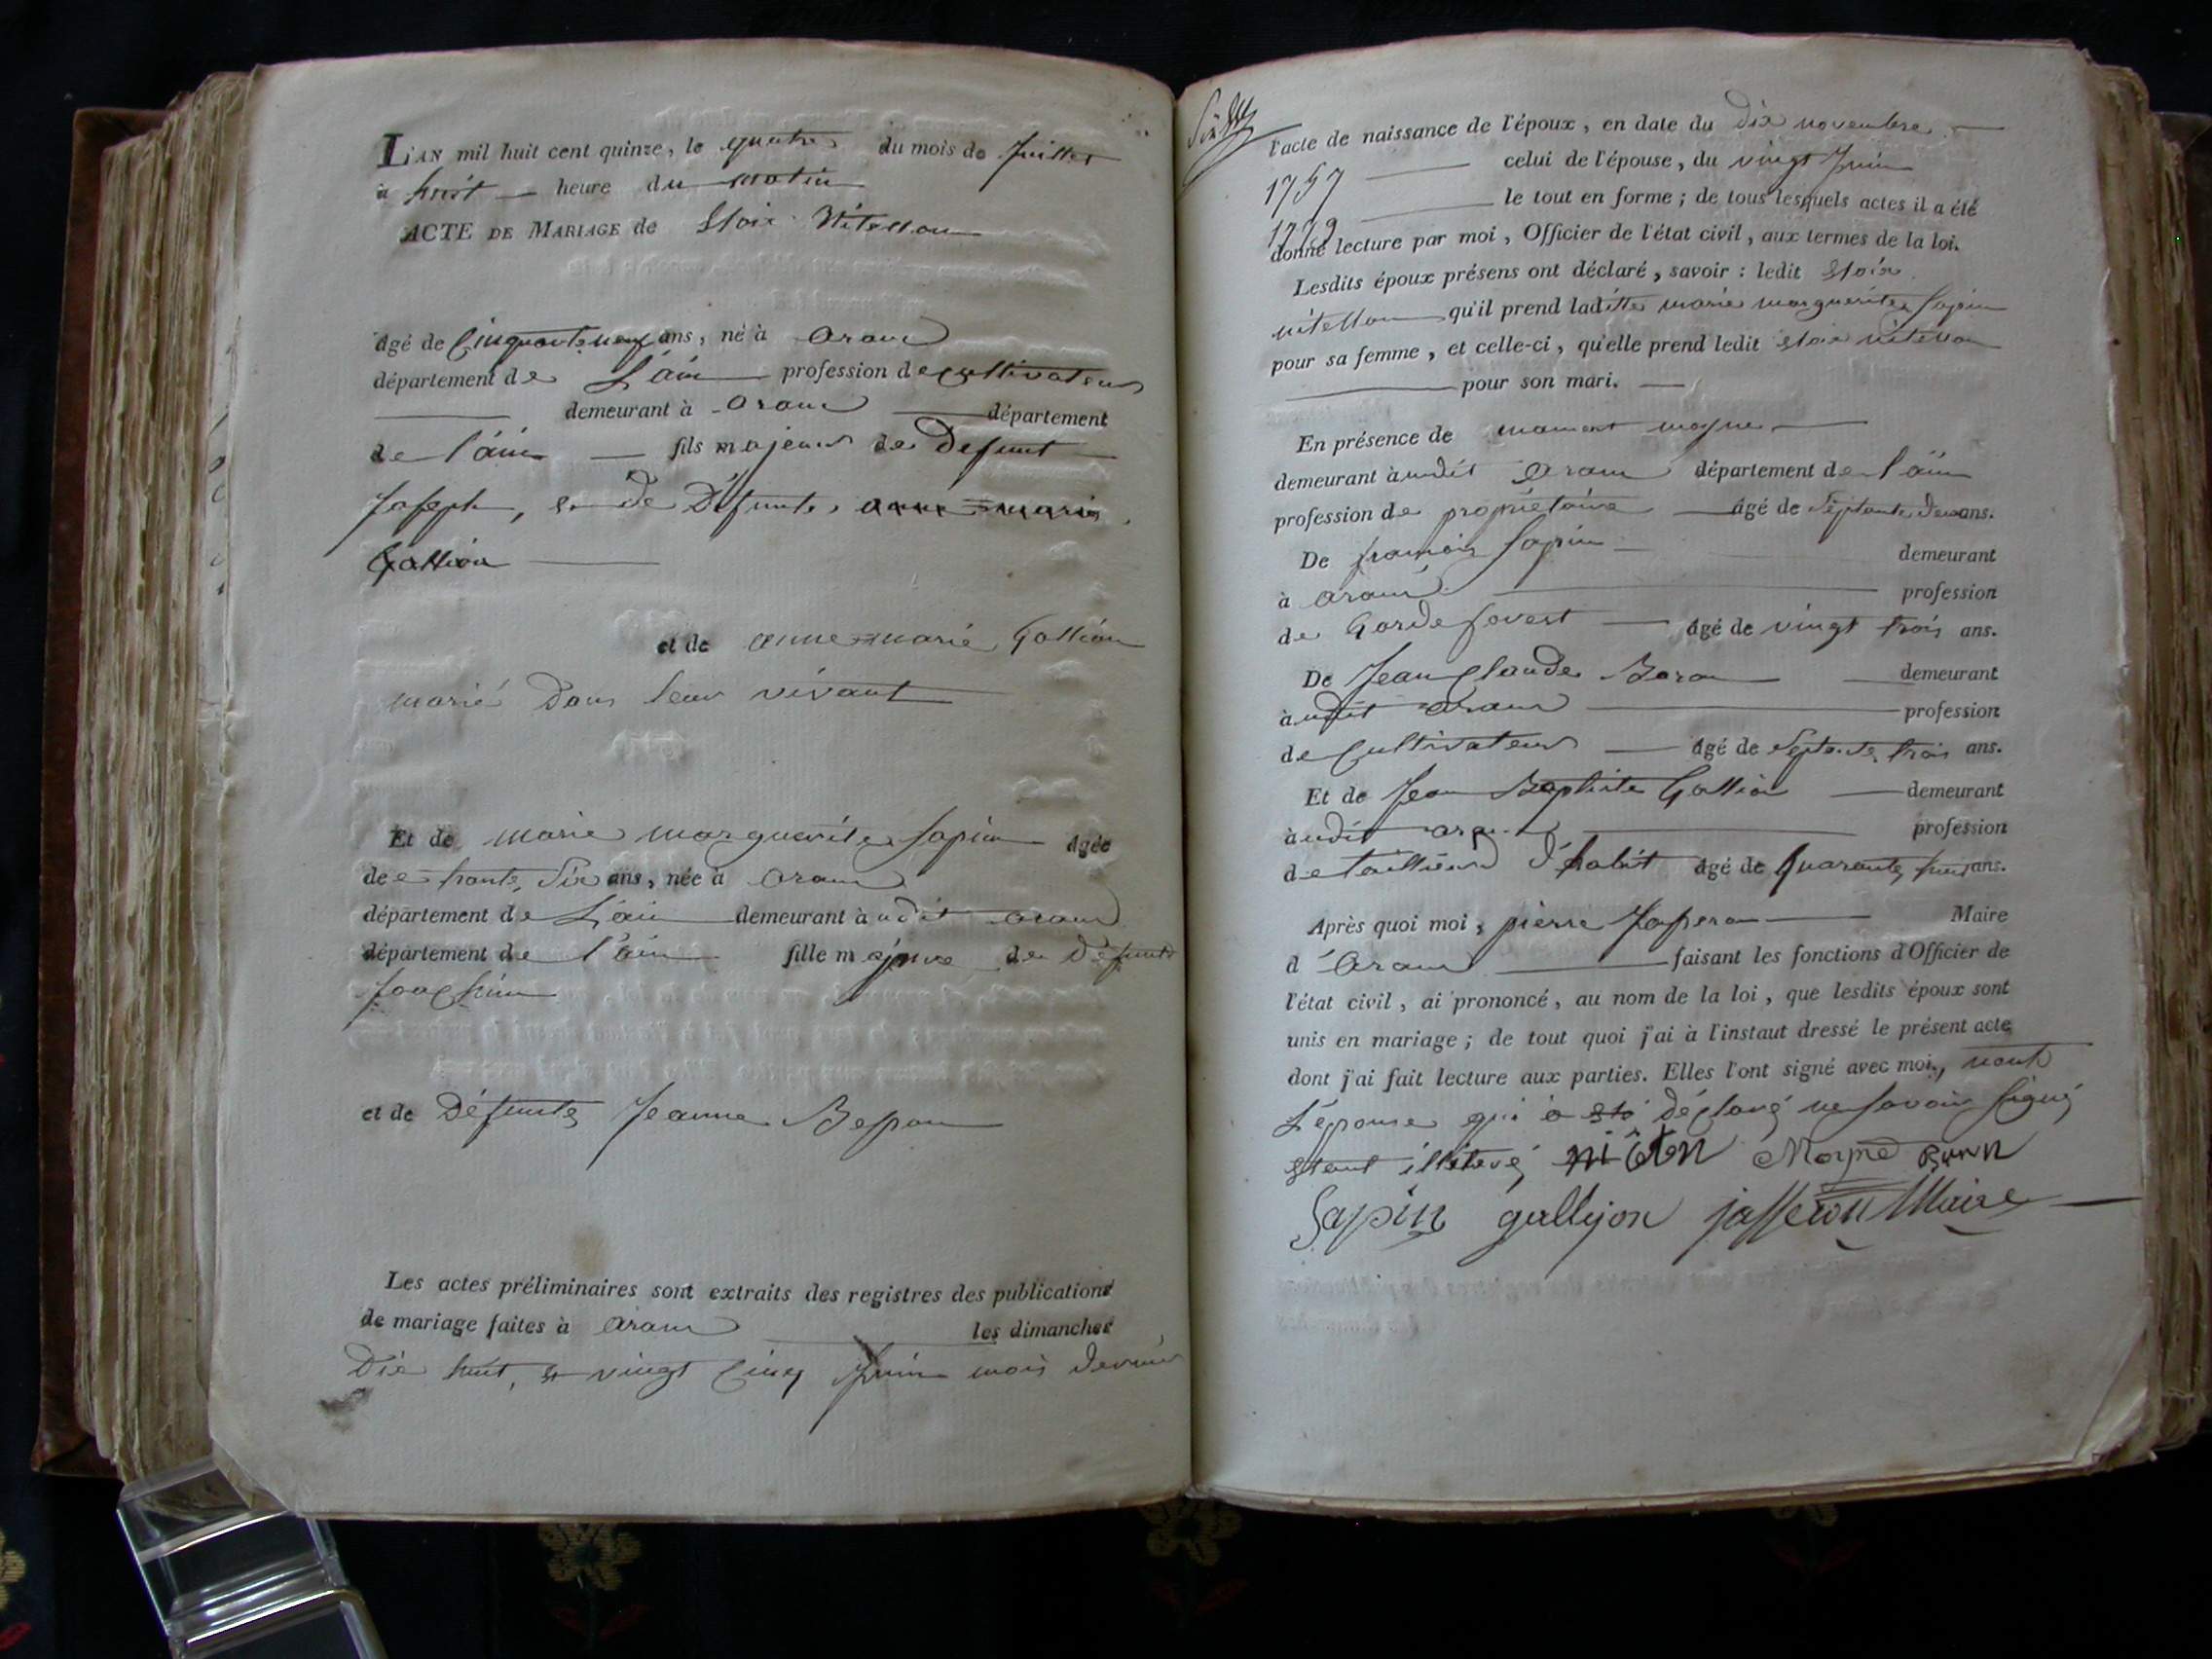 L'AN mil huit cent quinze, le quatre du mois de Juillet
à huit heure du matin
ACTE DE MARIAGE de
agé de Cinquante neuf ans, né à aranc
département de L'ain profession de cultivateur
demeurant à aranc département
de l'ain fils majeur de Defunt
Joseph, et de Défunte anne marie
Gallion
et de anne marie Gallion
marié Dans leur vivant
Et de marie marguerite Sapin agée
de trante six ans, née à aranc
département de L'ain demeurant à udit aranc
département de l'ain fille majeure de Défunt
Joachim
et de Défunte Jeanne
Les actes préliminaires sont extraits des registres des publications
de mariage faites à aranc les dimanches
Dix huit, et vingt Cinq Juin mois dernier
l'acte de naissance de l'époux, en date du dix novembre
1757 celui de l'épouse, du vingt Juin
1779 le tout en forme ; de tous lesquels actes il a été
donné lecture par moi, Officier de l'état civil, aux termes de la loi.
Lesdits époux présens ont déclaré, savoir : ledit
qu'il prend laditte marie marguerite Sapin
pour sa femme, et celle-ci, qu'elle prend ledit
pour son mari.
En présence de
demeurant à udit aranc département de l'ain
profession de propriétaire agé de Septante deux ans.
De francois Sapin demeurant
à aranc profession
de Garde forest agé de vingt trois ans.
De Jean Claude demeurant
à udit aranc profession
de Cultivateur agé de Septante trois ans.
Et de Jean Baptiste Gallion demeurant
à udit aranc profession
de tailleur d'habit agé de Quarante ans.
Après quoi moi, pierre Maire
d'Aranc faisant les fonctions d'Officier de
l'état civil, ai prononcé, au nom de la loi, que lesdits époux sont
unis en mariage ; de tout quoi j'ai à l'instaut dressé le présent acte
dont j'ai fait lecture aux parties. Elles l'ont signé avec moi,
L'épouse qui a déclaré ne savoir signé
étant illiteré
Sapin gallijon jasseron Maire